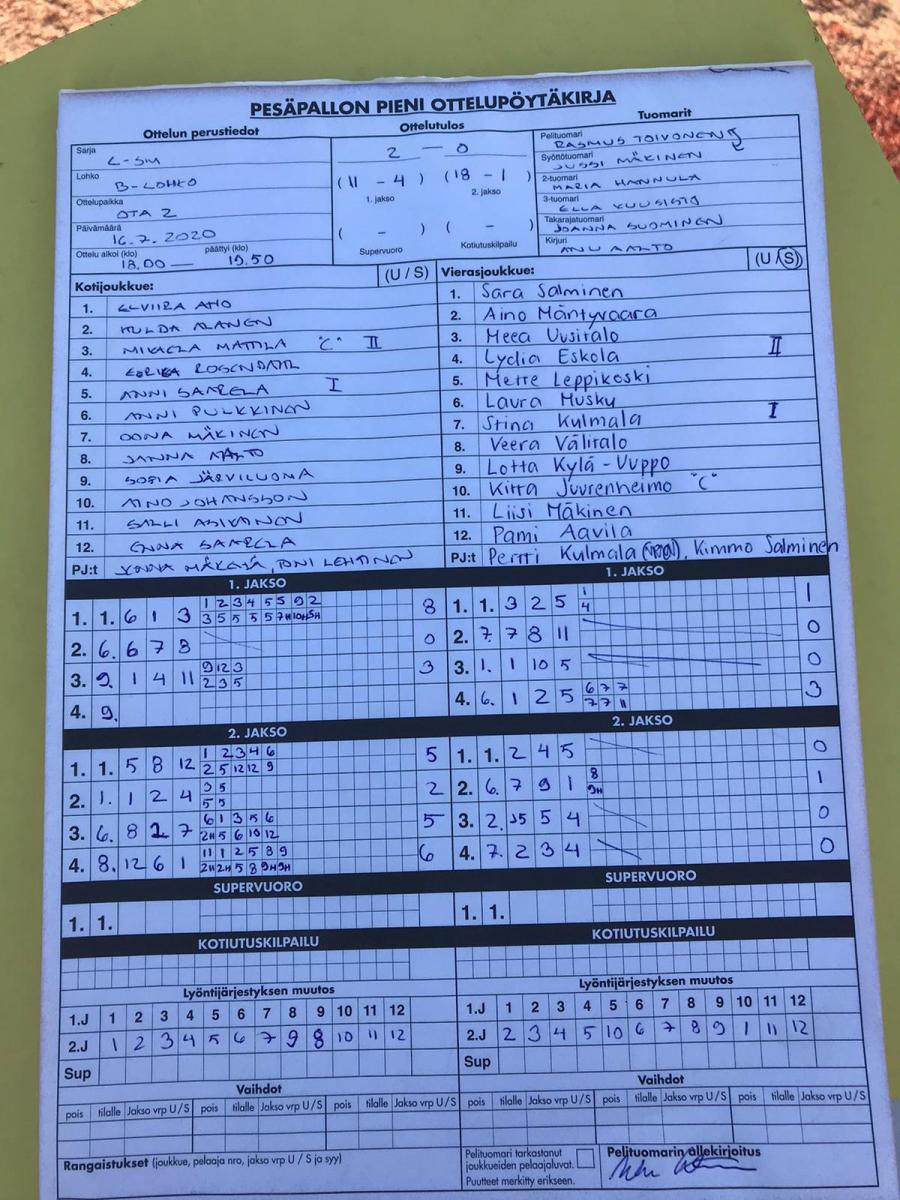 PESÄPALLON PIENI OTTELUPÖYTÄKIRJA
Ottelun perustiedot
Sarja L-SM
Lohko B-LOHKO
Ottelupaikka OTA 2
Päivämäärä 16.7.2020
Ottelu alkoi (klo) 18.00 — päättyi (klo) 19.50
Ottelutulos
2 – 0
(11 - 4) (18 - 1)
1. jakso 2. jakso
( - ) ( - )
Supervuoro Kotiutuskilpailu
Tuomarit
Pelituomari RASMUS TOIVONEN
Syöttötuomari JUSSI MÄKINEN
2-tuomari MARIA HANNULA
3-tuomari ELLA KUUSISTO
Takarajatuomari JOANNA SUOMINEN
Kirjuri ANU AALTO
Kotijoukkue: (U / S)
1. ELVIIRA AHO
2. HULDA ALANEN
3. MIKAELA MATTILA "C" II
4. EERIKA ROSENDAHL
5. ANNI SAARELA I
6. ANNI PULKKINEN
7. OONA MÄKINEN
8. JANNA AALTO
9. SOFIA JÄRVILUOMA
10. AINO JOHANSSON
11. SALLI ASIKAINEN
12. ENNA SAARELA
PJ:t MÄKELÄ, TONI LEHTINEN
Vierasjoukkue: (U / S)
1. Sara Salminen
2. Aino Mäntyvaara
3. Meea Uusitalo
4. Lydia Eskola II
5. Mette Leppikoski
6. Laura Husky
7. Stina Kulmala I
8. Veera Välitalo
9. Lotta Kylä-Uuppo
10. Kitta Juurenheimo "C"
11. Liisi Mäkinen
12. Pami Aavila
PJ:t Pertti Kulmala, Kimmo Salminen
1. JAKSO
1. 1. 6 1 3 1 2 3 4 5 5 9 2 8
3 5 5 5 5 7H 10H 5H
2. 6. 6 7 8 0
3. 9. 1 4 11 9 12 3 3
2 3 5
4. 9.
2. JAKSO
1. 1. 5 8 12 1 2 3 4 6 5
2 5 12 12 9
2. 1. 1 2 4 3 5 2
5 5
3. 6. 8 2 7 6 1 3 5 6 5
2H 5 6 10 12
4. 8. 12 6 1 11 1 2 5 8 9 6
2H 2H 5 8 9H 9H
SUPERVUORO
1. 1.
KOTIUTUSKILPAILU
Lyöntijärjestyksen muutos
1.J 1 2 3 4 5 6 7 8 9 10 11 12
2.J 1 2 3 4 5 6 7 9 8 10 11 12
Sup
Vaihdot
pois tilalle Jakso vrp U / S pois tilalle Jakso vrp U / S pois tilalle Jakso vrp U / S
Rangaistukset (joukkue, pelaaja nro, jakso vrp U / S ja syy)
1. JAKSO
1. 1. 3 2 5 1 1
4
2. 7. 7 8 11 0
3. 1. 1 10 5 0
4. 6. 1 2 5 6 7 7 3
7 7 11
2. JAKSO
1. 1. 2 4 5 0
2. 6. 7 9 1 8 1
9H
3. 2. 5 5 4 0
4. 7. 2 3 4 0
SUPERVUORO
1. 1.
KOTIUTUSKILPAILU
Lyöntijärjestyksen muutos
1.J 1 2 3 4 5 6 7 8 9 10 11 12
2.J 2 3 4 5 10 6 7 8 9 1 11 12
Sup
Vaihdot
pois tilalle Jakso vrp U / S pois tilalle Jakso vrp U / S pois tilalle Jakso vrp U / S
Pelituomari tarkastanut
joukkueiden pelaajaluvat.
Puutteet merkitty erikseen.
Pelituomarin allekirjoitus